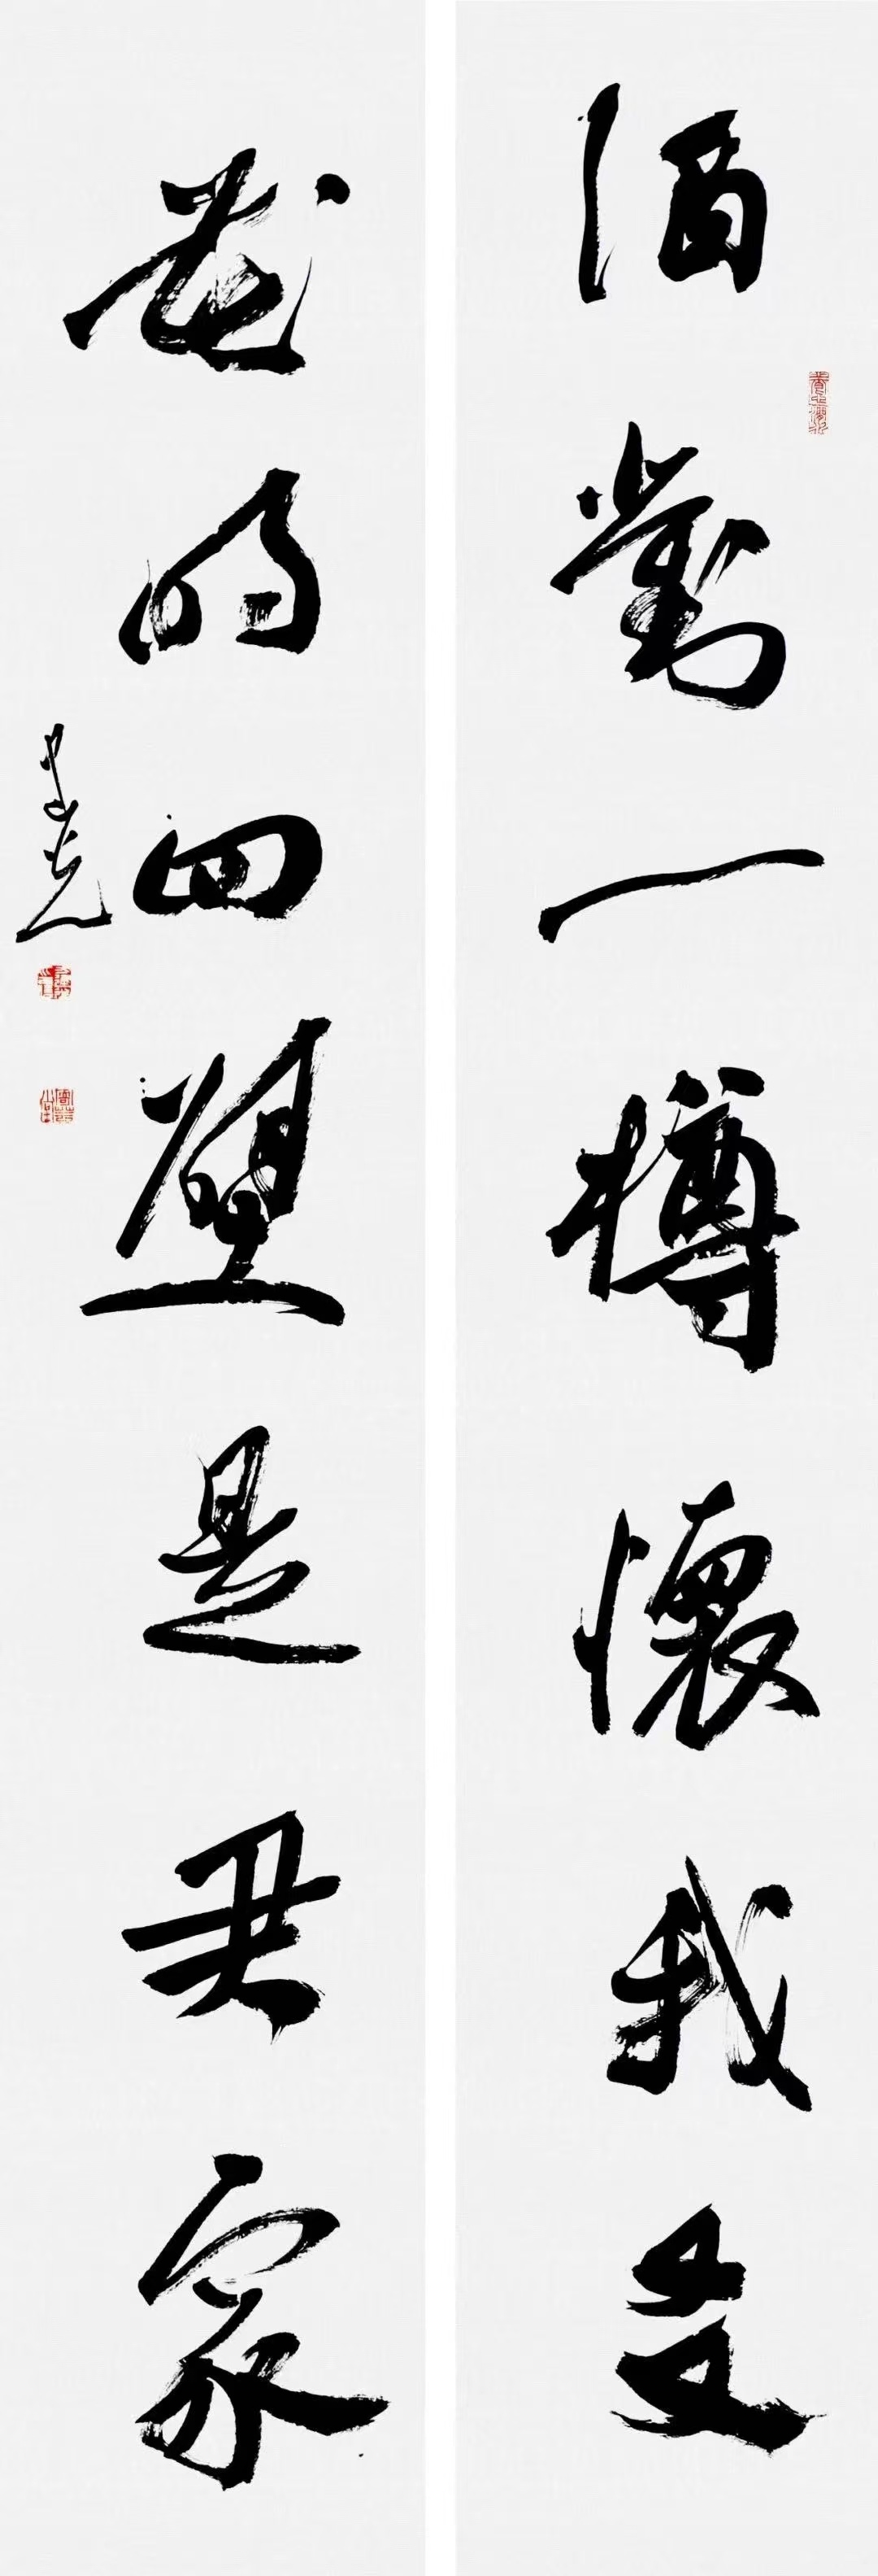 酒對一樽懷我友
花明四壁是君家